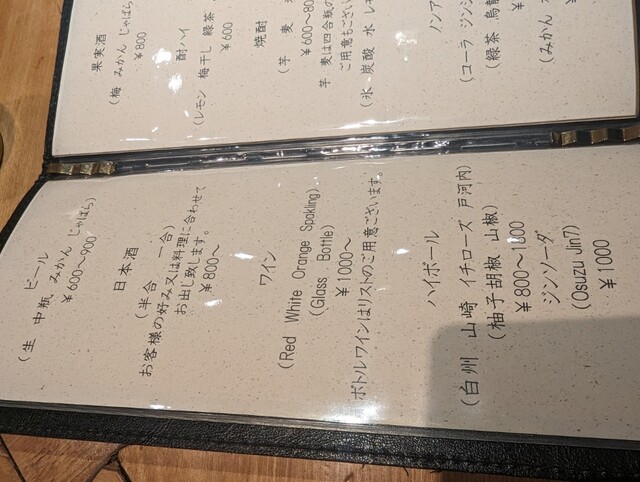 ビール
(生 中瓶 みかん じゃばら)
￥600～900
日本酒
(半合 一合)
お客様の好み又は料理に合わせて
お出し致します。
￥800～
ワイン
(Red White Orange Spakling)
(Glass、Bottle)
￥1000～
ボトルワインはリストのご用意ございます。
ハイボール
(白州 山崎 イチローズ 戸河内)
(柚子胡椒 山椒)
￥800～1800
ジンソーダ
(Osuzu Jin7)
￥1000
果実酒
(梅 みかん じゃばら)
￥800
酎ハイ
(レモン 梅干し 緑茶
￥600
焼酎
(芋 麦
￥600～80
芋・麦は四合瓶の
ご用意もござい
(氷 炭酸 水 レモ
ノンア
(コーラ ジンジ
(緑茶 烏龍
￥
(みかん
￥